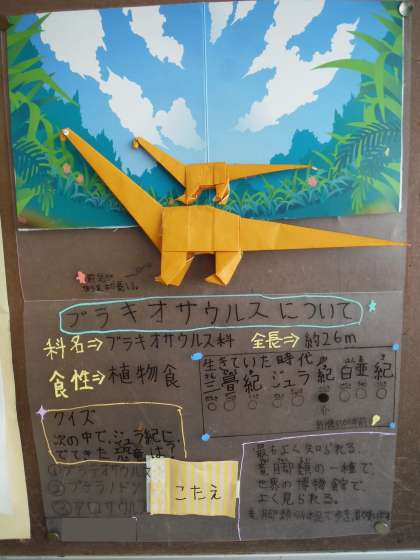 前足が
後足より長い。
ブラキオサウルスについて
科名⇒ブラキオサウルス科 全長⇒約26m
食性⇒植物食
生きていた時代
三畳紀 ジュラ紀 白亜紀
クイズ
次の中で、ジュラ紀に
でてきた恐竜は?
②プテラノドン
③アロサウルス
こたえ
最もよく知られる、
竜脚類の一種で、
世界の博物館で
よく見られる。